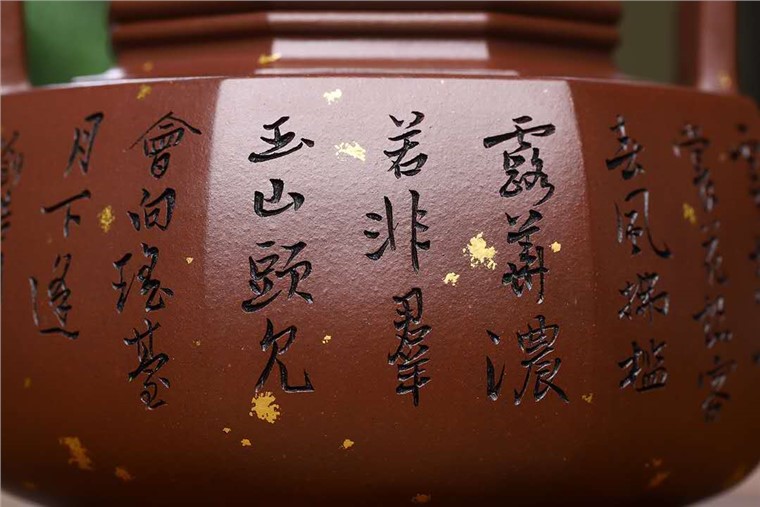 裳花想容
春風拂檻
露華濃
若非羣
玉山頭見
會向瑤臺
月下逢